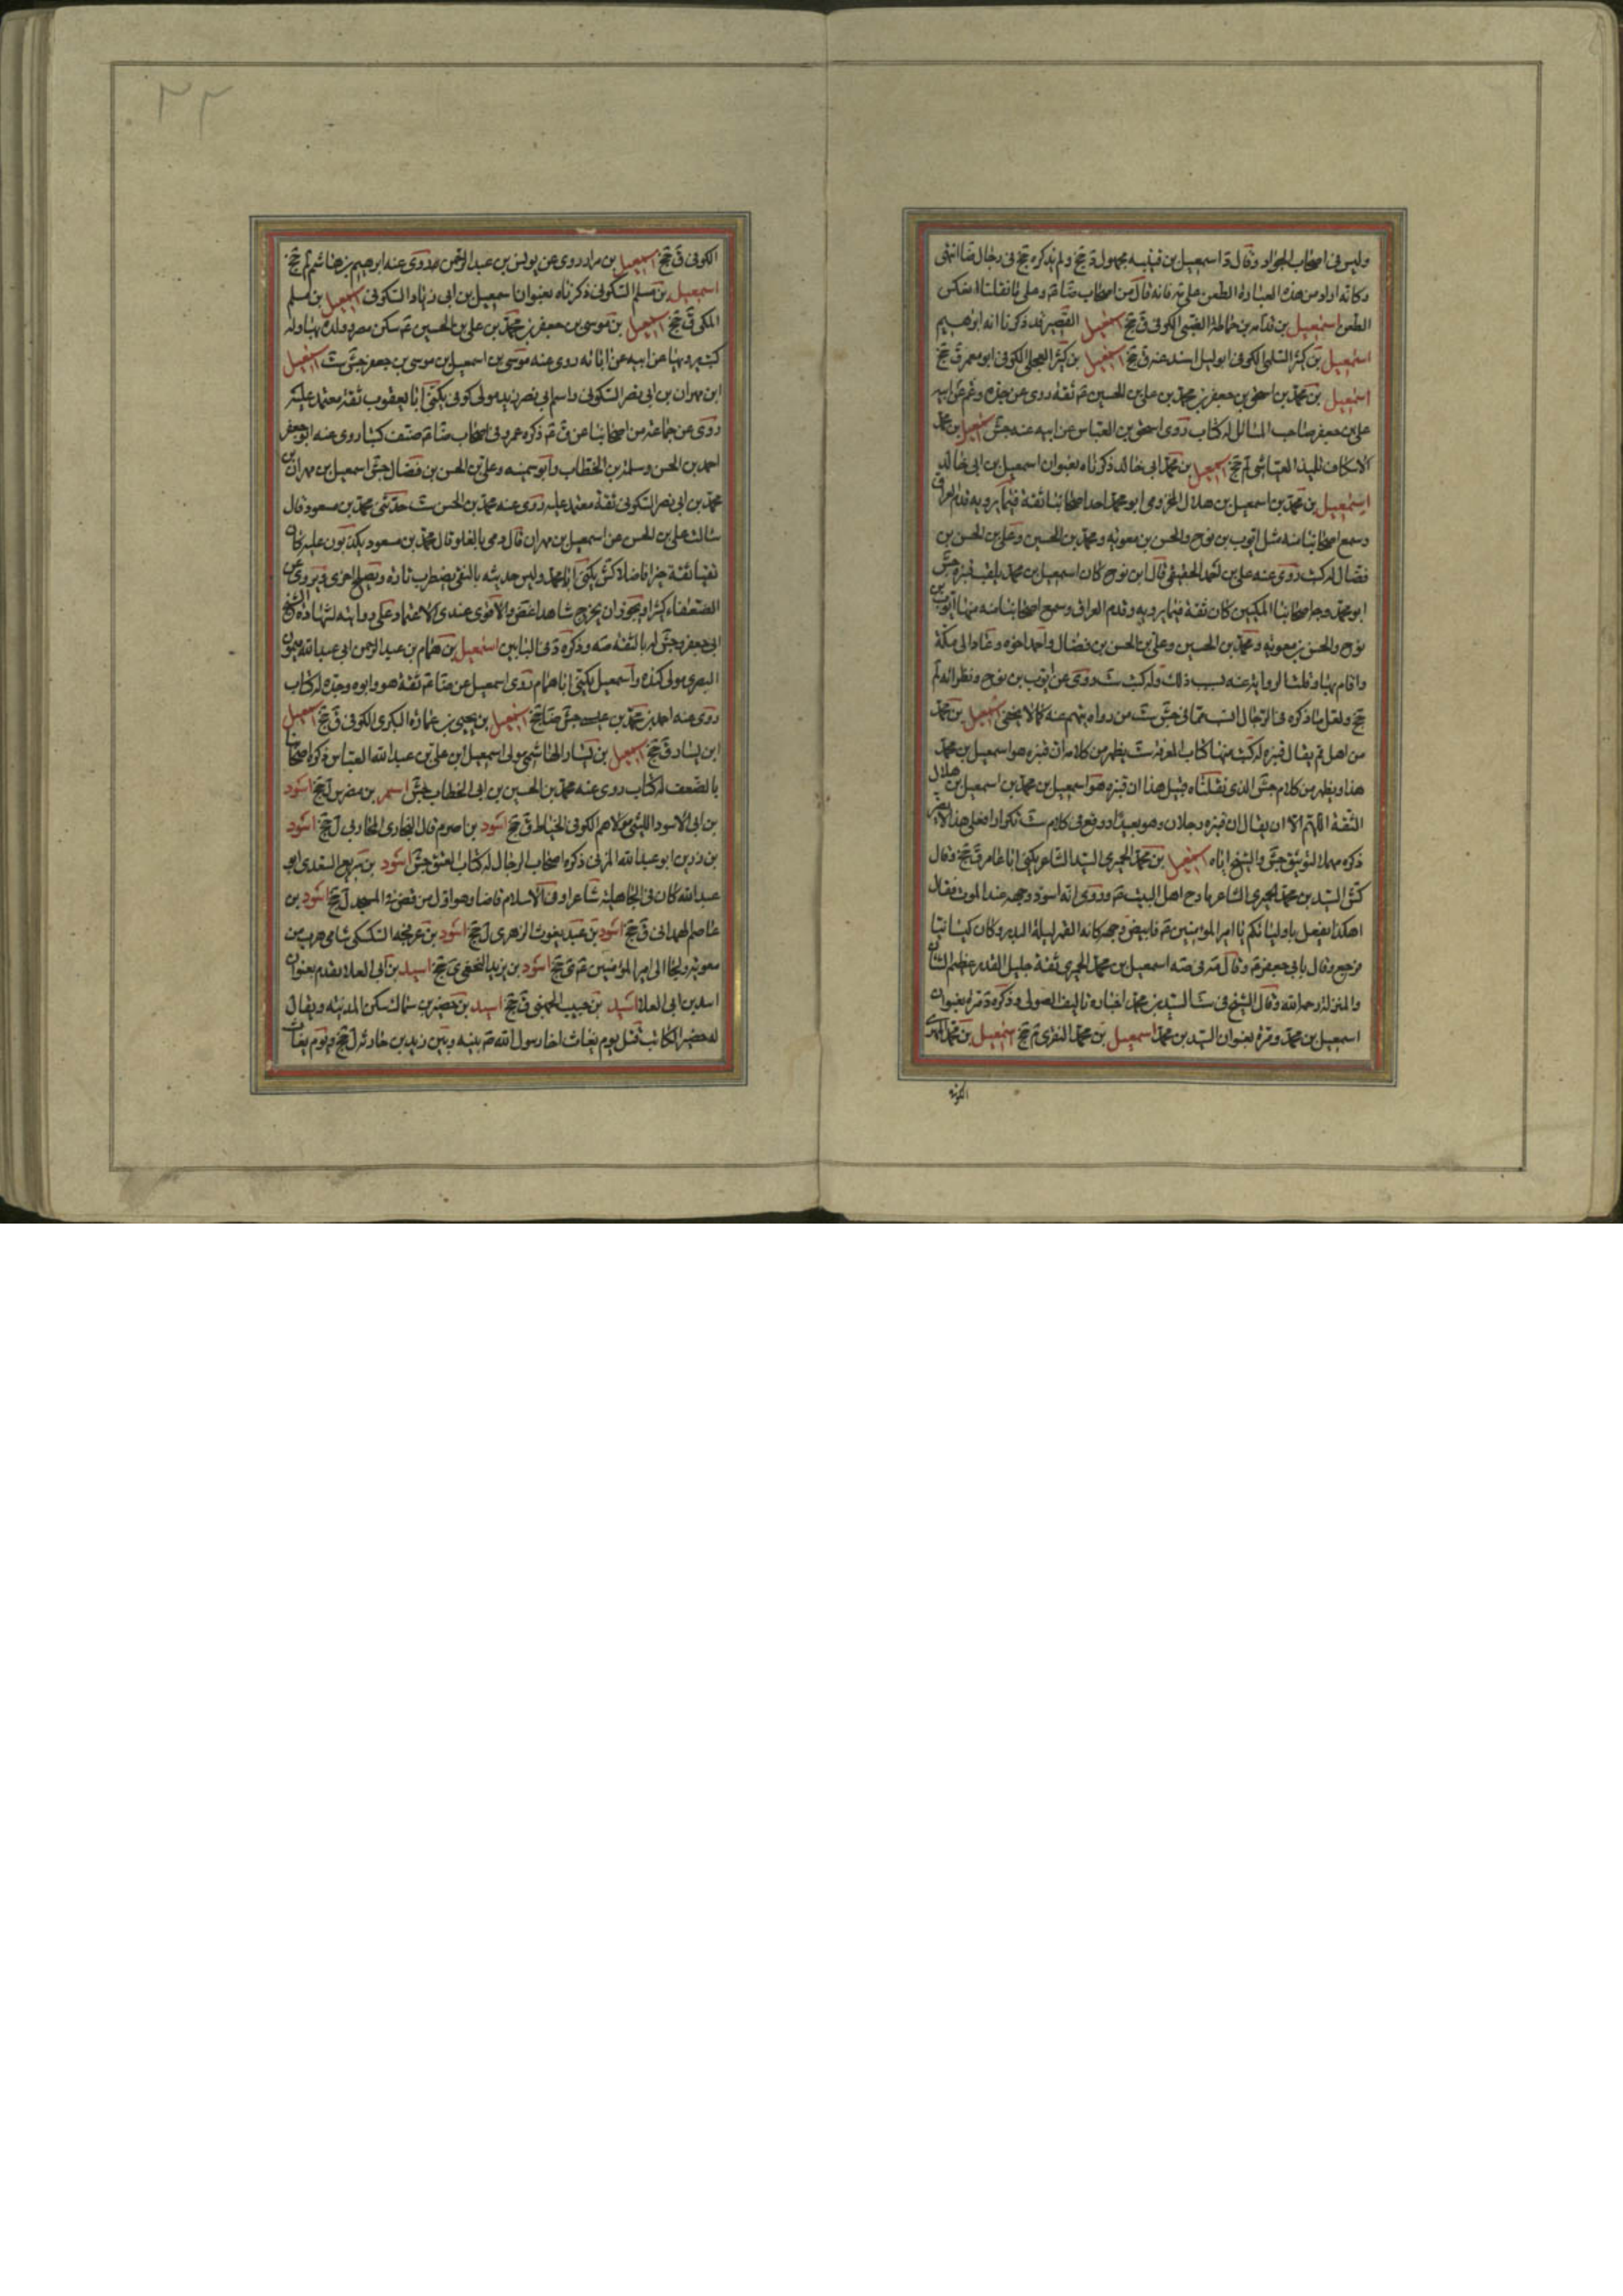 وليس فى اصحاب الجواد وقال د اسمعيل بن قتيبه مجهول د جخ ولم يذكره جخ فى رجال ضا انتهى
وكانه اراد من هذه العبارة الطعن على د فانه قال من اصحاب ضا ع وعلى ما نقلناه
الطعن اسمعيل بن قدامه بن حماطة الضبى الكوفى ق جخ اسمعيل القصير قد ذكرنا انه ابرهيم
اسمعيل بن كثير السلمى الكوفى ابو ليل اسند عنه ق جخ اسمعيل بن كثير العجلى الكوفى ابو معمر ق جخ
اسمعيل بن محمد بن اسحق بن جعفر بن محمد بن على بن الحسين ع ثقة روى عن جده وعم ابيه
على بن جعفر صاحب المسائل له كتاب روى اسحق بن العباس عن ابيه عنه جش اسمعيل بن محمد
الاسكاف تلميذ العياشى لم جخ اسمعيل بن محمد ابى خالد ذكرناه بعنوان اسمعيل بن ابى خالد
اسمعيل بن محمد بن اسمعيل بن هلال المخزومى ابو محمد احد اصحابنا ثقة فيما يرويه قدم العراق
وسمع اصحابنا منه مثل ايوب بن نوح والحسن بن معويه ومحمد بن الحسين وعلى بن الحسن بن
فضال له كتب روى عنه على بن احمد العقيقى قال ابن نوح كان اسمعيل بن محمد يلقب قنبره جش
ابو محمد وجه اصحابنا المكيين كان ثقة فيما يرويه وقدم العراق وسمع اصحابنا منه منهم ايوب بن
نوح والحسن بن معويه ومحمد بن الحسين وعلى بن الحسن بن فضال واحمد اخوه وعاد الى مكة
واقام بها وقلت الرواية عنه بسبب ذلك وله كتب ست وروى عن ايوب بن نوح ونظرائه لم
جخ ولعل ما ذكره فى الرجال انسب مما فى جش ست من رواه بهم عنه كما لا يخفى اسمعيل بن محمد
من اهل قم يقال قنبره له كتب منها كتاب المعرفة ست يظهر من كلامه ان قنبره هو اسمعيل بن محمد
هذا ويظهر من كلام جش الذى نقلناه قبل هذا ان قنبره هو اسمعيل بن محمد بن اسمعيل بن هلال
الثقة اللهم الا ان يقال ان قنبره رجلان وهو بعيد او وقع فى كلام ست تكرار
ذكره مهملا لتوثيق جش والشيخ اياه اسمعيل بن محمد الحميرى السيد الشاعر يكنى ابا عامر ق جخ وقال
كش السيد بن محمد الحميرى الشاعر مادح اهل البيت ع وروى انه اسود وجهه عند الموت فقال
اهكذا يفعل باوليائكم يا امير المؤمنين ع فابيض وجهه كانه القمر ليلة البدر وكان كيسانيا
فرجع وقال بابى جعفر ع وقال اسمعيل بن محمد الحميرى ثقة جليل القدر عظيم الشان
والمنزلة رحمه الله وقال الشيخ فى ست السيد بن محمد اخباره تاليف الصولى وذكره د مرة بعنوان
اسمعيل بن محمد ومرة بعنوان السيد بن محمد اسمعيل بن محمد المنقرى ق جخ اسمعيل بن محمد
الكوفى
٢٢
الكوفى ق جخ اسمعيل بن مرار روى عن يونس بن عبد الرحمن وروى عنه ابرهيم بن هاشم لم جخ
اسمعيل بن مسلم السكونى ذكرناه بعنوان اسمعيل بن ابى زياد السكونى اسمعيل بن مسلم
المكى ق جخ اسمعيل بن موسى بن جعفر بن محمد بن على بن الحسين ع سكن مصر وولده بها وله
كتب يرويها عن ابيه عن ابائه روى عنه موسى بن اسمعيل بن موسى بن جعفر جش ست اسمعيل
ابن مهران بن ابى نصر السكونى واسم ابى نصر زيد مولى كوفى يكنى ابا يعقوب ثقة معتمد عليه
روى عن جماعة من اصحابنا عن ق ع ذكره عمرو فى اصحاب ضا ع صنف كتبا روى عنه ابو جعفر
احمد بن الحسن وسلمة بن الخطاب وابو سمينه وعلى بن الحسن بن فضال جش اسمعيل بن مهران بن
محمد بن ابى نصر السكونى ثقة معتمد عليه روى عنه محمد بن الحسن ست حدثنى محمد بن مسعود قال
سالت على بن الحسن عن اسمعيل بن مهران قال رمى بالغلو قال محمد بن مسعود يكذبون عليه كان
تقيا ثقة خيرا فاضلا كش يكنى ابا محمد وليس حديثه بالنقى يضطرب تارة ويصلح اخرى ويروى عن
الضعفاء كثيرا ويجوز ان يخرج شاهدا غض والاقوى عندى الاعتماد على روايته لشهادة الشيخ
ابى جعفر وجش له بالثقة صه وذكره د فى البابين اسمعيل بن همام بن عبد الرحمن ابى عبد الله ميمون
البصرى مولى كندة واسمعيل يكنى ابا همام روى اسمعيل عن ضا ع ثقة هو وابوه وجده له كتاب
روى عنه احمد بن محمد بن عيسى جش ضا جخ اسمعيل بن يحيى بن عمارة البكرى الكوفى ق جخ اسمعيل
ابن يسار ق جخ اسمعيل بن يسار الهاشمى مولى اسمعيل بن على بن عبد الله العباس ذكره اصحابنا
بالضعف له كتاب روى عنه محمد بن الحسين بن ابى الخطاب جش اسمر بن مضرس ل جخ اسود
بن ابى الاسود الليثى مولاهم الكوفى الخياط ق جخ اسود بن اصرم قال البخارى المحاربى ل جخ اسود
بن رزين ابو عبد الله المزنى ذكره اصحاب الرجال له كتاب العتق جش اسود بن سريع السعدى ابو
عبد الله كان فى الجاهلية شاعرا وفى الاسلام قاضيا وهو اول من قص فى المسجد ل جخ اسود بن
عاصم الهمدانى ق جخ اسود بن عبد يغوث الزهرى ل جخ اسود بن عرفجه السكسكى شامى هرب من
معويه ولجا الى امير المؤمنين ع ى جخ اسود بن يزيد النخعى ى جخ اسيد بن ابى العلا يقدم بعنوان
اسد بن ابى العلا اسيد بن حبيب الجهنى ق جخ اسيد بن حضير بن سماك سكن المدينه ويقال
له حضير الكتائب قتل يوم بغاث اخا رسول الله ص بينه وبين زيد بن حارثه ل جخ ويوم بغاث